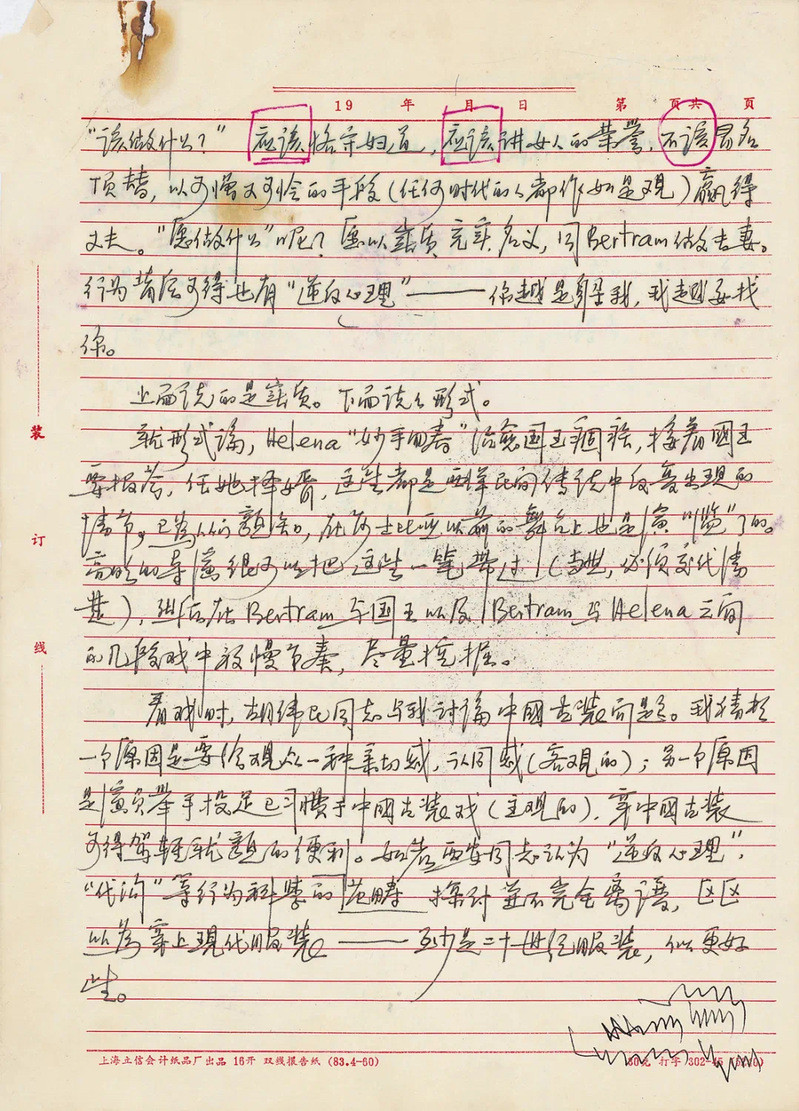 19 年 月 日 第 页共 页
"该做什么？" 应该恪守妇道，应该讲女人的荣誉，不该冒名
顶替，以可憎又可怜的手段（任何时代的人都作如是观）赢得
丈夫。"愿做什么"呢？愿以实质充实名义，同Bertram做夫妻。
行为背后可得也有"逆反心理"——你越是躲我，我越要找
你。
上面说的是实质。下面说说形式。
就形式论，Helena"妙手回春"治愈国王痼疾，接着國王
要报答，任她择婿，这些都是西洋民间传说中反复出现的
情节，已为人们韻知，在莎士比亚以前的舞台上也是演"监"了的。
高明的导演很可以把这些一笔带过（当然，必须交代清
楚），然后在Bertram与国王以及Bertram与Helena之间
的几段戏中放慢节奏，尽量挖掘。
看戏时，胡伟民同志与我讨論中國古装问题。我猜想
一个原因是要给观众一种亲切感，认同感（客观的）；另一个原因
是演员举手投足已习惯于中國古装戏（主观的），穿中國古装
可得驾轻就熟的便利。如若西安同志认为"逆反心理"，
"代沟"等行为科学的范畴探讨并不完全离谱，区区
以为穿上現代服装——至少是二十世纪服装，似更好
些。
装
订
线
上海立信会计纸品厂出品 16开 双线报告纸 (83.4-60)